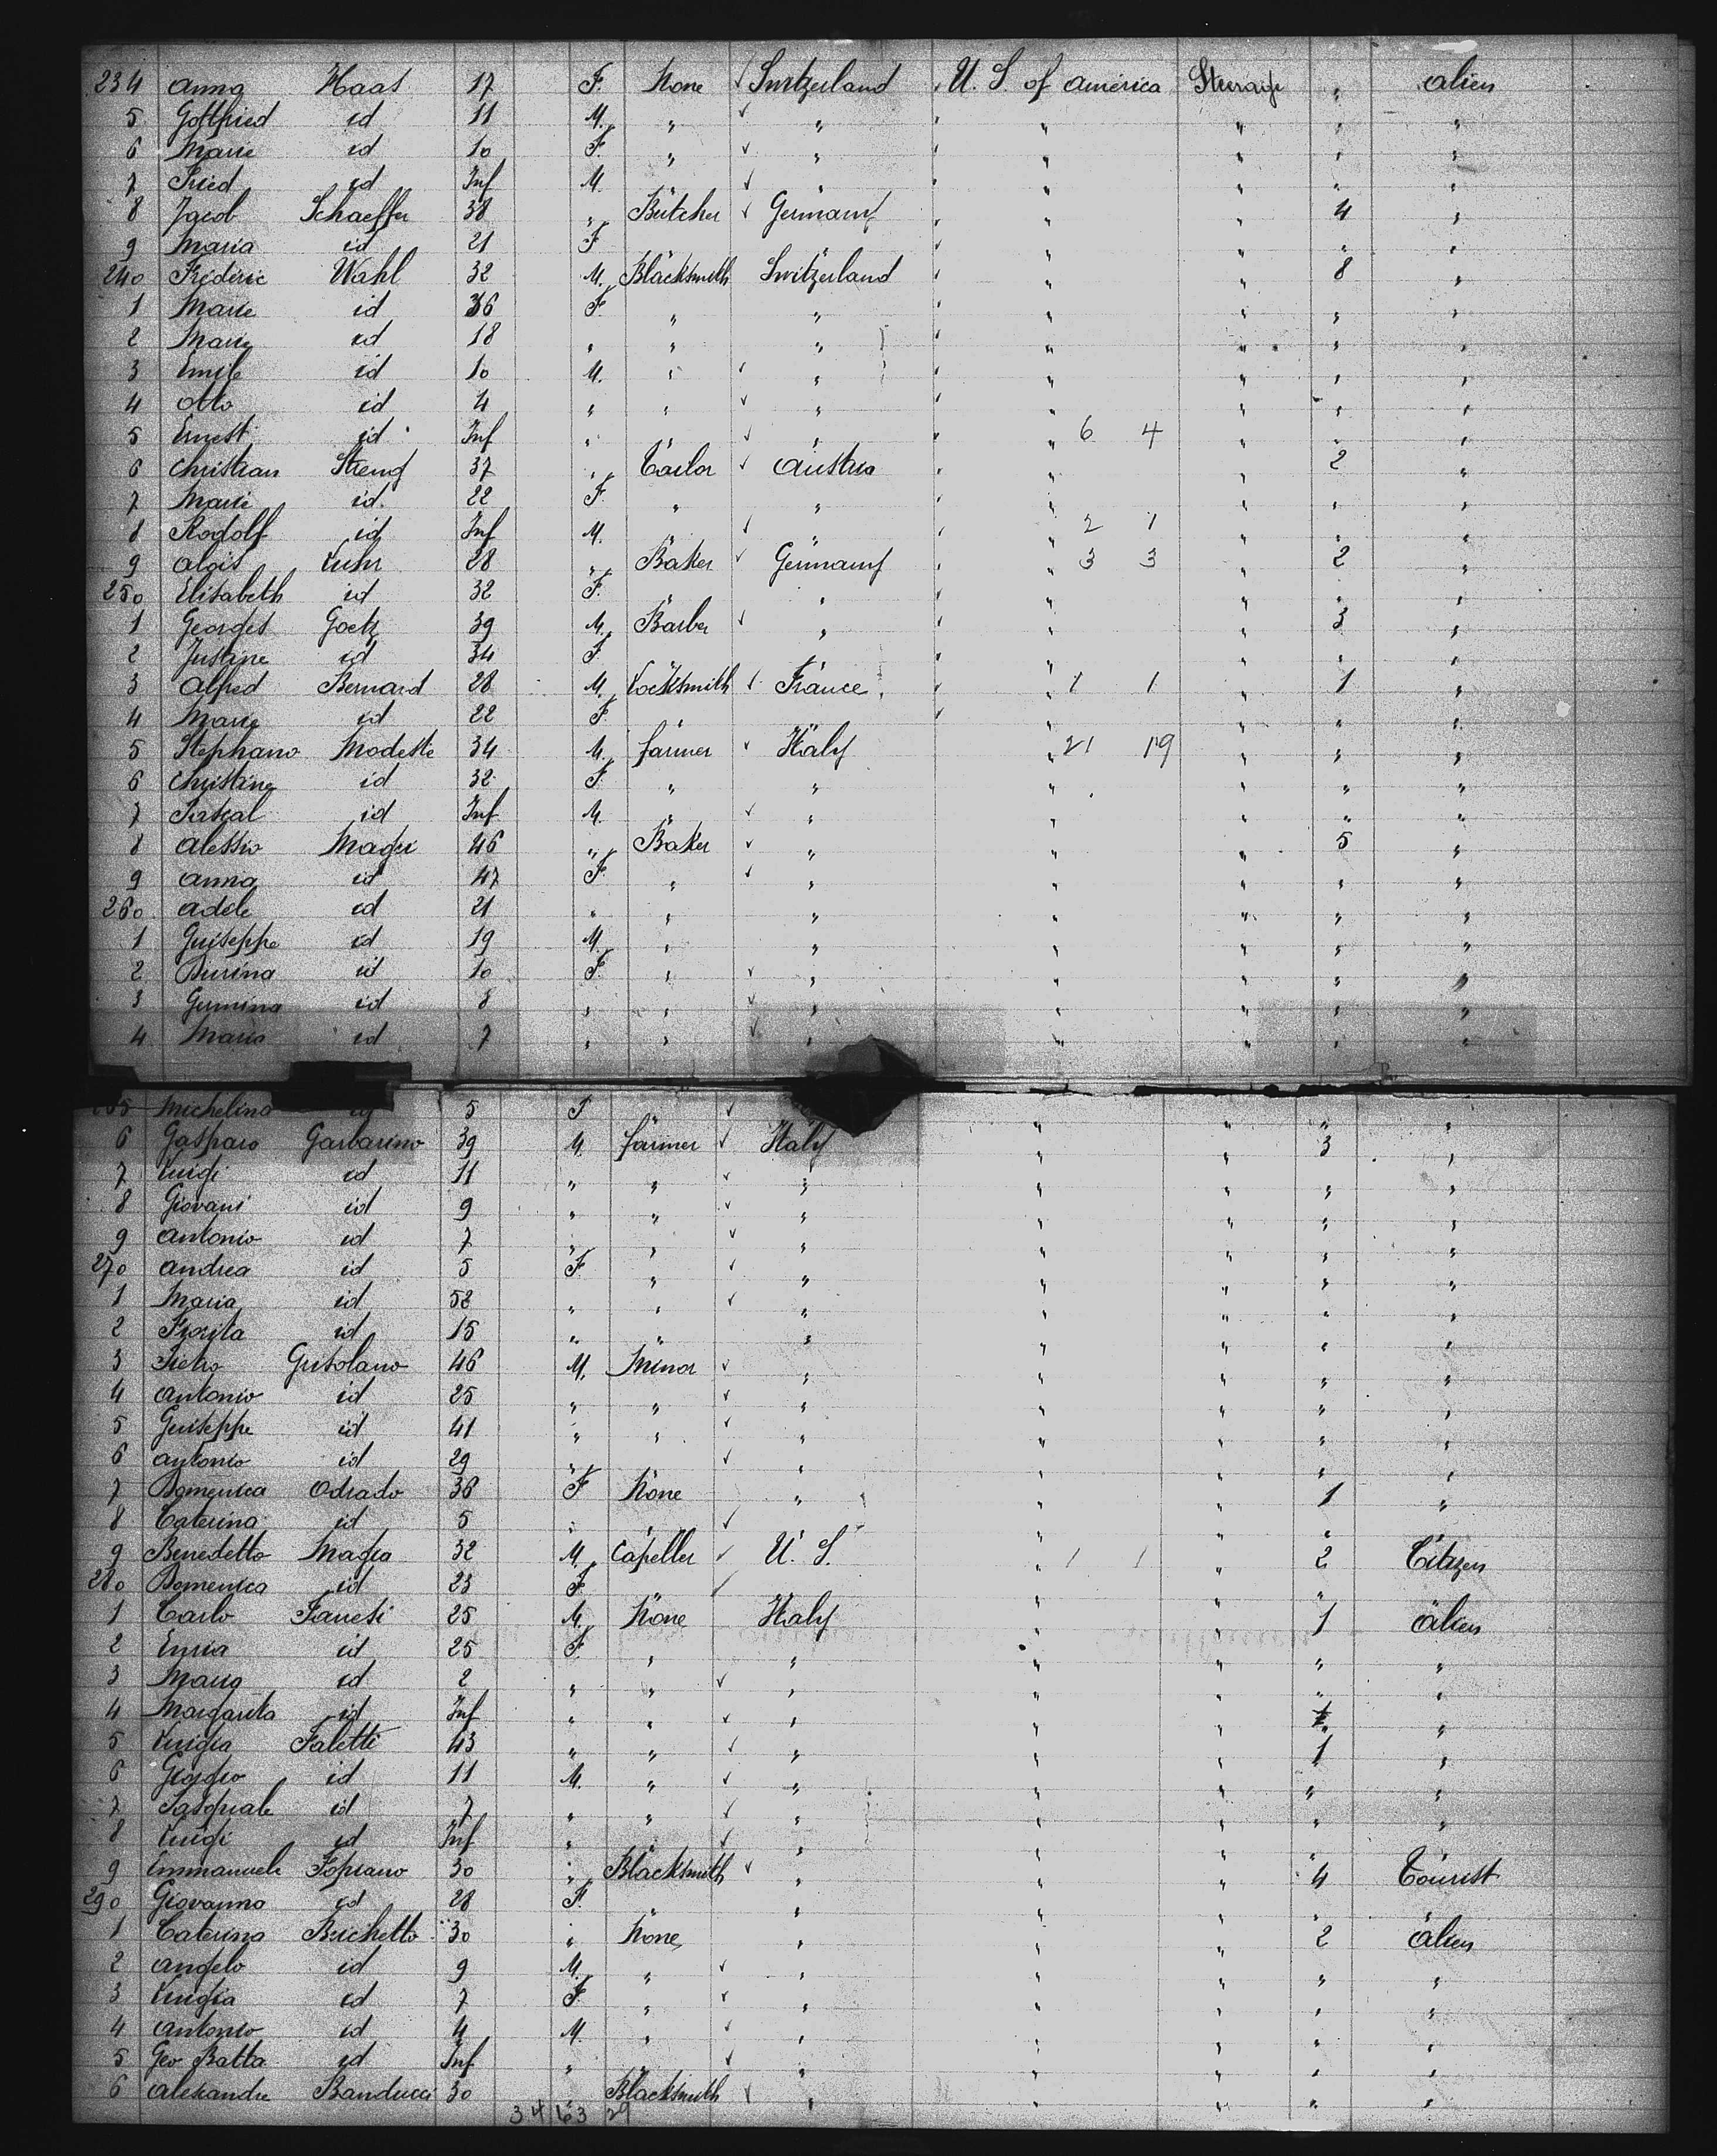 234 Anna Haas 17 F. None ✓ Switzerland " U. S. of America Steerage " Alien
5 Gottfried id 11 M. " ✓ " " " " " "
6 Marie id 10 F. " ✓ " " " " " "
7 Fried id Inf M. " ✓ " " " " " "
8 Jacob Schaeffer 38 " Butcher ✓ Germany " " " 4 "
9 Maria id 21 F " " " " " " "
240 Frederic Wahl 32 M. Blacksmith Switzerland " " " 8 "
1 Marie id 36 F. " " " " " " "
2 Marie id 18 " " " " " " " "
3 Emile id 10 M. " ✓ " " " " " "
4 Otto id 4 " " ✓ " " " " " "
5 Ernest id Inf " " ✓ " " " 6 4 " " "
6 Christian Streng 37 " Tailor ✓ Austria " " " 2 "
7 Marie id. 22 F. " " " " " " "
8 Rodolf id Inf M. " ✓ " " " 2 1 " " "
9 Alois Luhr 28 " Baker ✓ Germany " 3 3 " 2 "
250 Elisabeth id 32 F. " " " " " "
1 Georges Goetz 39 M. Barber ✓ " " " " 3 "
2 Justine id 34 F. " " " " " " "
3 Alfred Bernard 28 M. Locksmith ✓ France " " 1 1 " 1 "
4 Marie id 22 F. " " " " " " "
5 Stephano Modeste 34 M. farmer ✓ Italy " 21 19 " " "
6 Christine id 32 F. " " " " " "
7 Pascal id Inf M. " ✓ " " " " "
8 Alessio Magri 46 " Baker ✓ " " " 5 "
9 Anna id 47 F. " ✓ " " " " "
260 Adele id 21 " " " " " " "
1 Guiseppe id 19 M. " " " " " "
2 id 10 F. " ✓ " " " " "
3 id 8 " " ✓ " " " " "
4 Maria id 7 " " ✓ " " " " "
265 Michelina id 5 F ✓ " " " "
6 Gasparo Garbarino 39 M. farmer ✓ Italy " " 3 "
7 Luigi id 11 " " ✓ " " " " "
8 Giovani id 9 " " ✓ " " " " "
9 Antonio id 7 " " ✓ " " " " "
270 Andrea id 5 F. " ✓ " " " " "
1 Maria id 52 " " ✓ " " " " "
2 Fiorita id 15 " " " " " " "
3 Pietro Grisolano 46 M. Minor ✓ " " " " "
4 Antonio id 25 " " ✓ " " " " "
5 Guiseppe id 41 " " ✓ " " " " "
6 Antonio id 29 " " ✓ " " " " "
7 Domenica Odrado 36 F None " " " 1 "
8 Caterina id 5 " " ✓ " " " " "
9 Benedetto Magia 32 M. Capeller ✓ U. S. 1 1 " 2 Citizen
280 Domenica id 23 F. ✓ " " "
1 Carlo Fanesi 25 M. None Italy " " 1 Alien
2 id 25 F. " " " " " "
3 Maria id 2 " " ✓ " " " " "
4 Margarita id Inf " " ✓ " " " " "
5 Luigia Faletti 43 " " ✓ " " " 1 "
6 Giorgio id 11 M. " ✓ " " " " "
7 Pasquale id 7 " " ✓ " " " " "
8 Luigi id Inf " " ✓ " " " " "
9 Emmanuele Sopiano 30 " Blacksmith ✓ " " " 4 Tourist
290 Giovanna id 28 F. " " " " " "
1 Caterina Brichetto 30 " None " " " 2 Alien
2 Angelo id 9 M. " ✓ " " " " "
3 Luigia id 7 F. " ✓ " " " " "
4 Antonio id 4 M. " ✓ " " " " "
5 Geo Batta id Inf " ✓ " " " " "
6 Alexandre Banducci 30 Blacksmith ✓ " " " " "
34 63 29